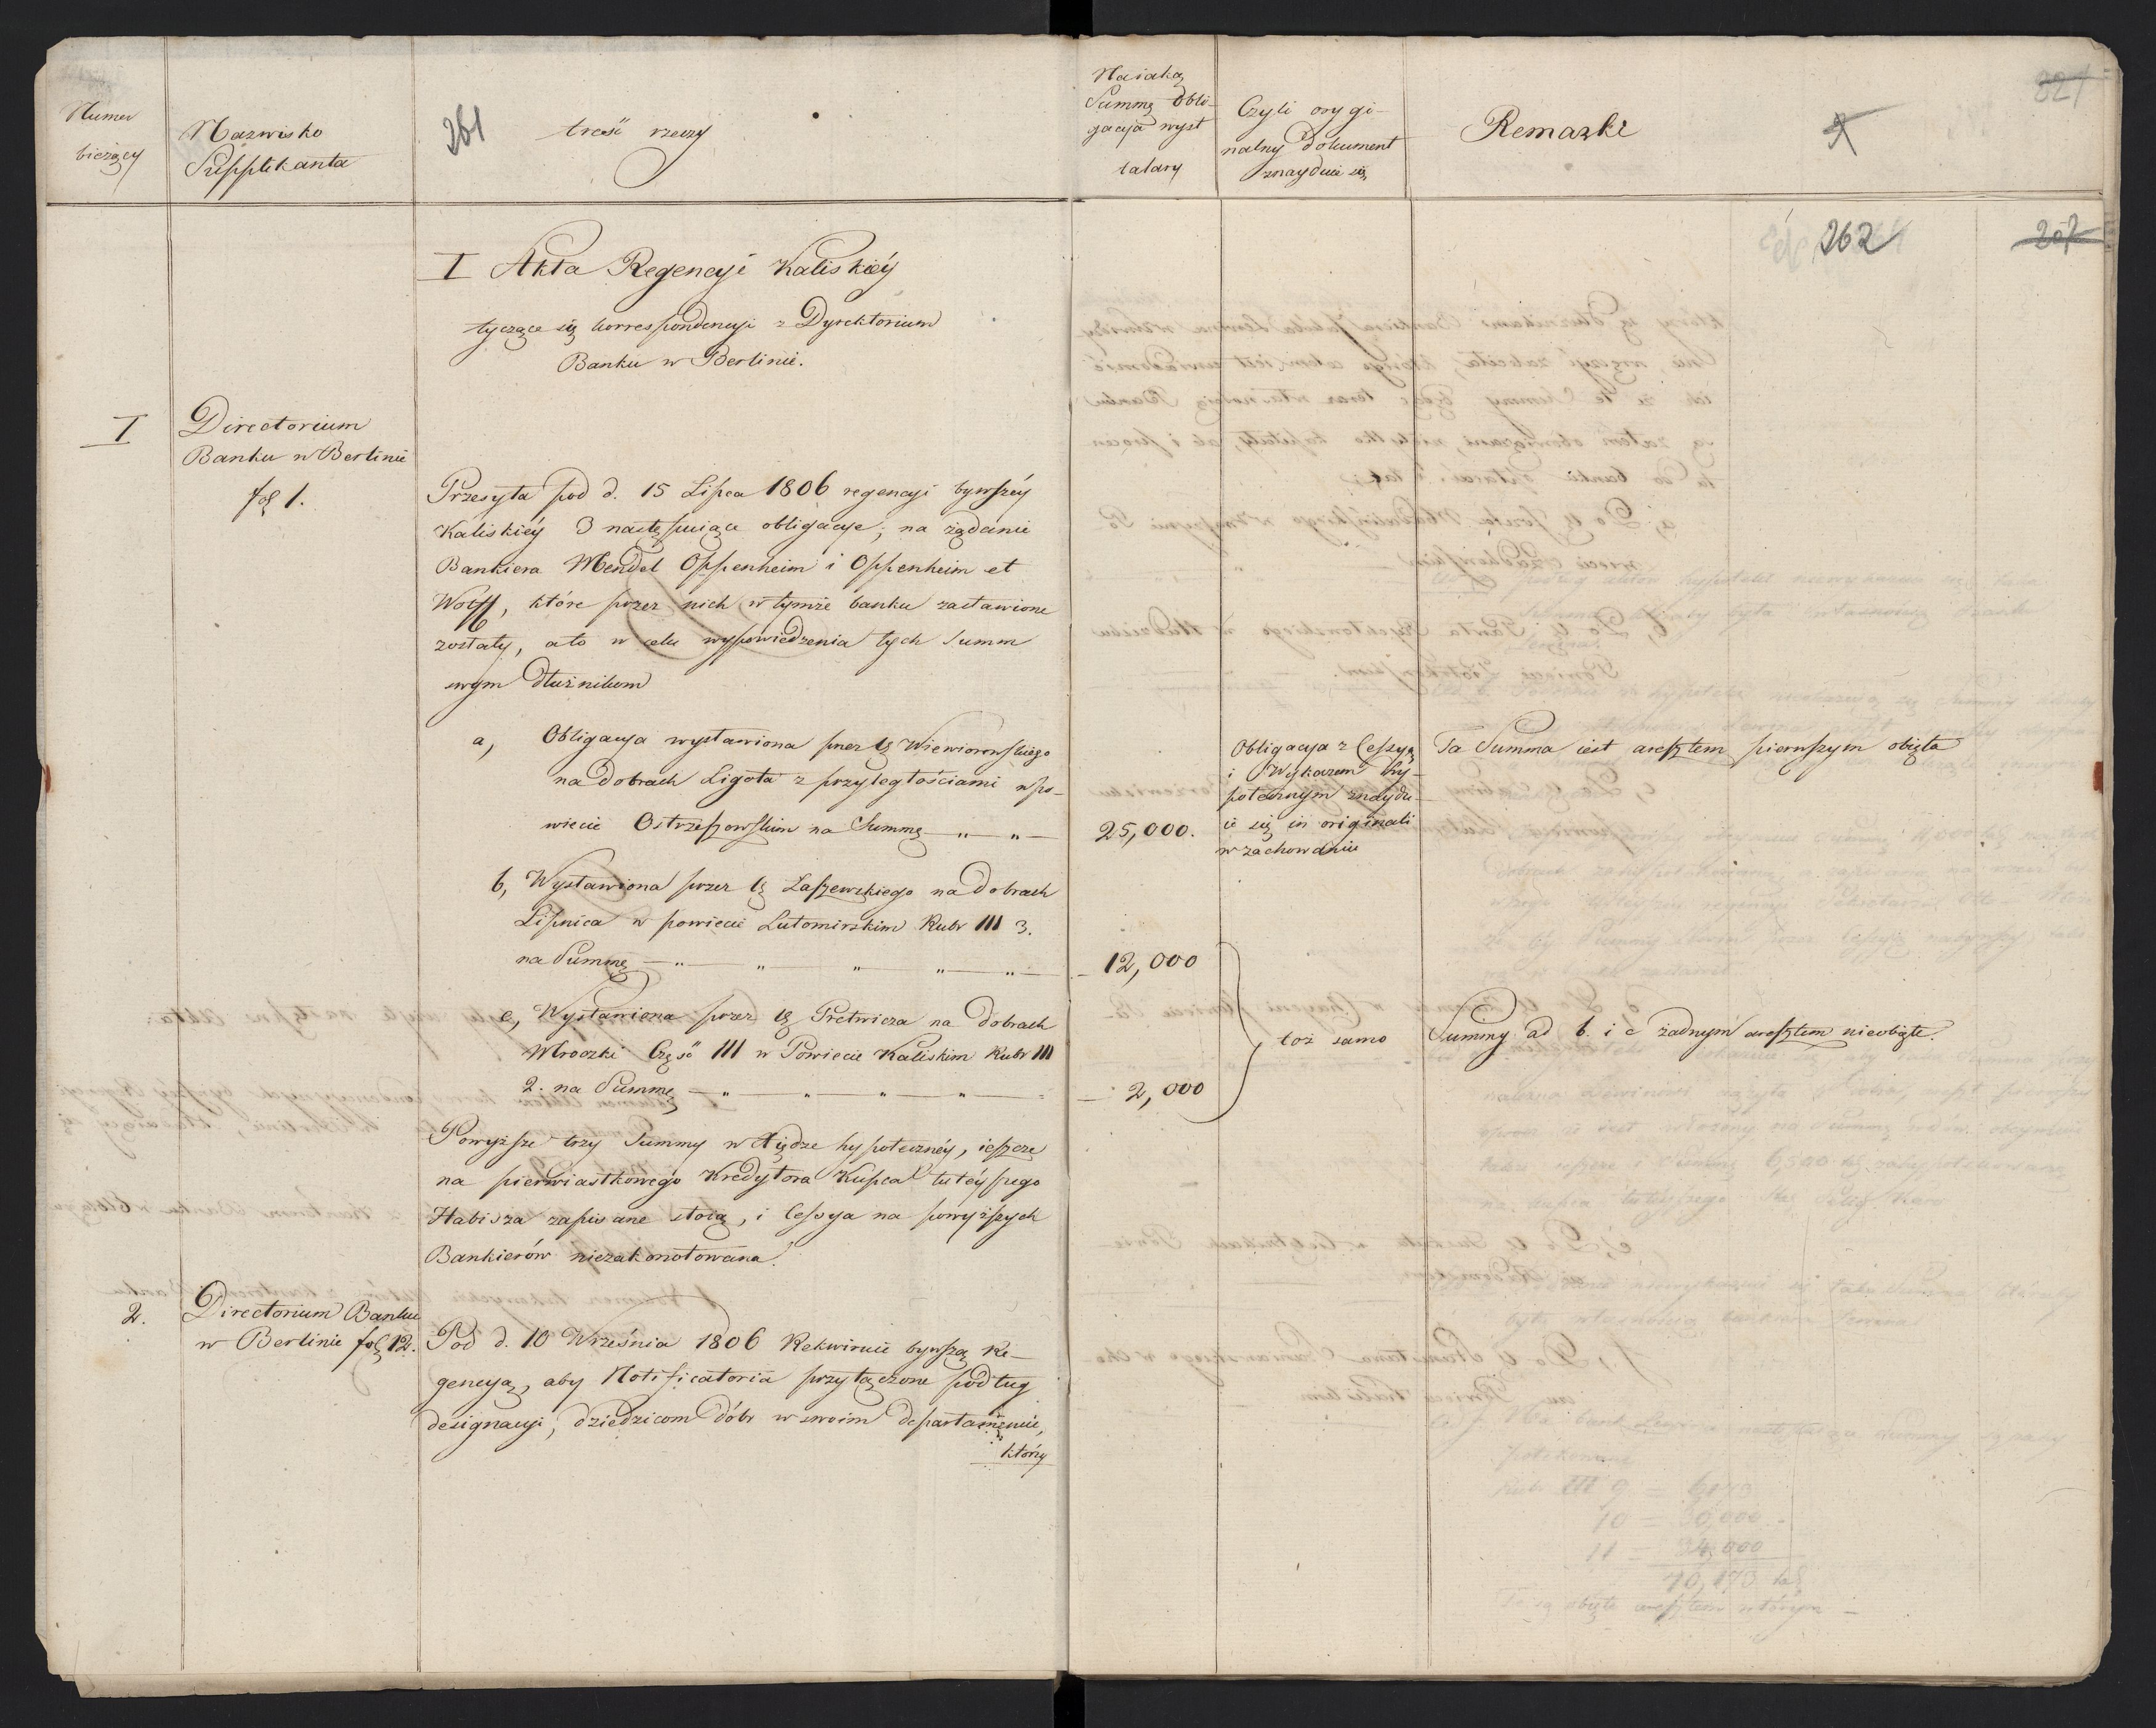 Numer
bieżący
Nazwisko
Supplikanta
261
treść rzeczy
Na iaką
Summę obli-
gacya wyst
talary
Czyli orygi-
nalny dokument
znayduie się
Remarki
321
262
207
I Akta Regencyi Kaliskiéy
tyczące się korrespondencyi z Dyrektorium
Banku w Berlinie.
I
Directorium
Banku w Berlinie
fol 1.
Przesyła pod d. 15 Lipca 1806 regencyi bywszéy
Kaliskiéy 3 następuiące obligacye, na żądanie
Bankiera Mendel Oppenheim i Oppenheim et
Wolff, które przez nich w tymże banku zastawione
zostały, a to w celu wypowiedzenia tych Summ
swym dłużnikom
a, Obligacya wystawiona przez Wiewiorowskiego
na dobrach Ligota z przyległościami w po-
wiecie Ostrzeszowskim na Summę — „ — „ —
25,000.
Obligacya z Cessyą
i Wykazem hy-
potecznym znaydu-
ie się in originali
w zachowaniu
Ta Summa iest aresztem pierwszym obięta
b, Wystawiona przez Łaszewskiego na dobrach
Lipnica w powiecie Lutomirskim Rubr III 3.
na Summę — „ — „ — „ — „ — „ —
12,000
c, Wystawiona przez Pretwicza na dobrach
Mroczki Część III w Powiecie Kaliskim Rubr III
2. na Summę — „ — „ — „ — „ —
2,000
toż samo
Summy ad b. i c żadnym aresztem nieobięte.
Powyższe trzy Summy w Xiędze hypotecznéy, ieszcze
na pierwiastkowego Kredytora Kupca tutéyszego
Habisza zapisane stoią, i Cessya na powyższych
Bankierów niezakonotowana.
2.
Directorium Banku
w Berlinie fol 12.
Pod d. 10 Września 1806 Rekwiruie bywszą Re-
gencyą, aby Notificatoria przyłączone podług
designacyi, dziedzicom dóbr w swoim departamencie,
którzy